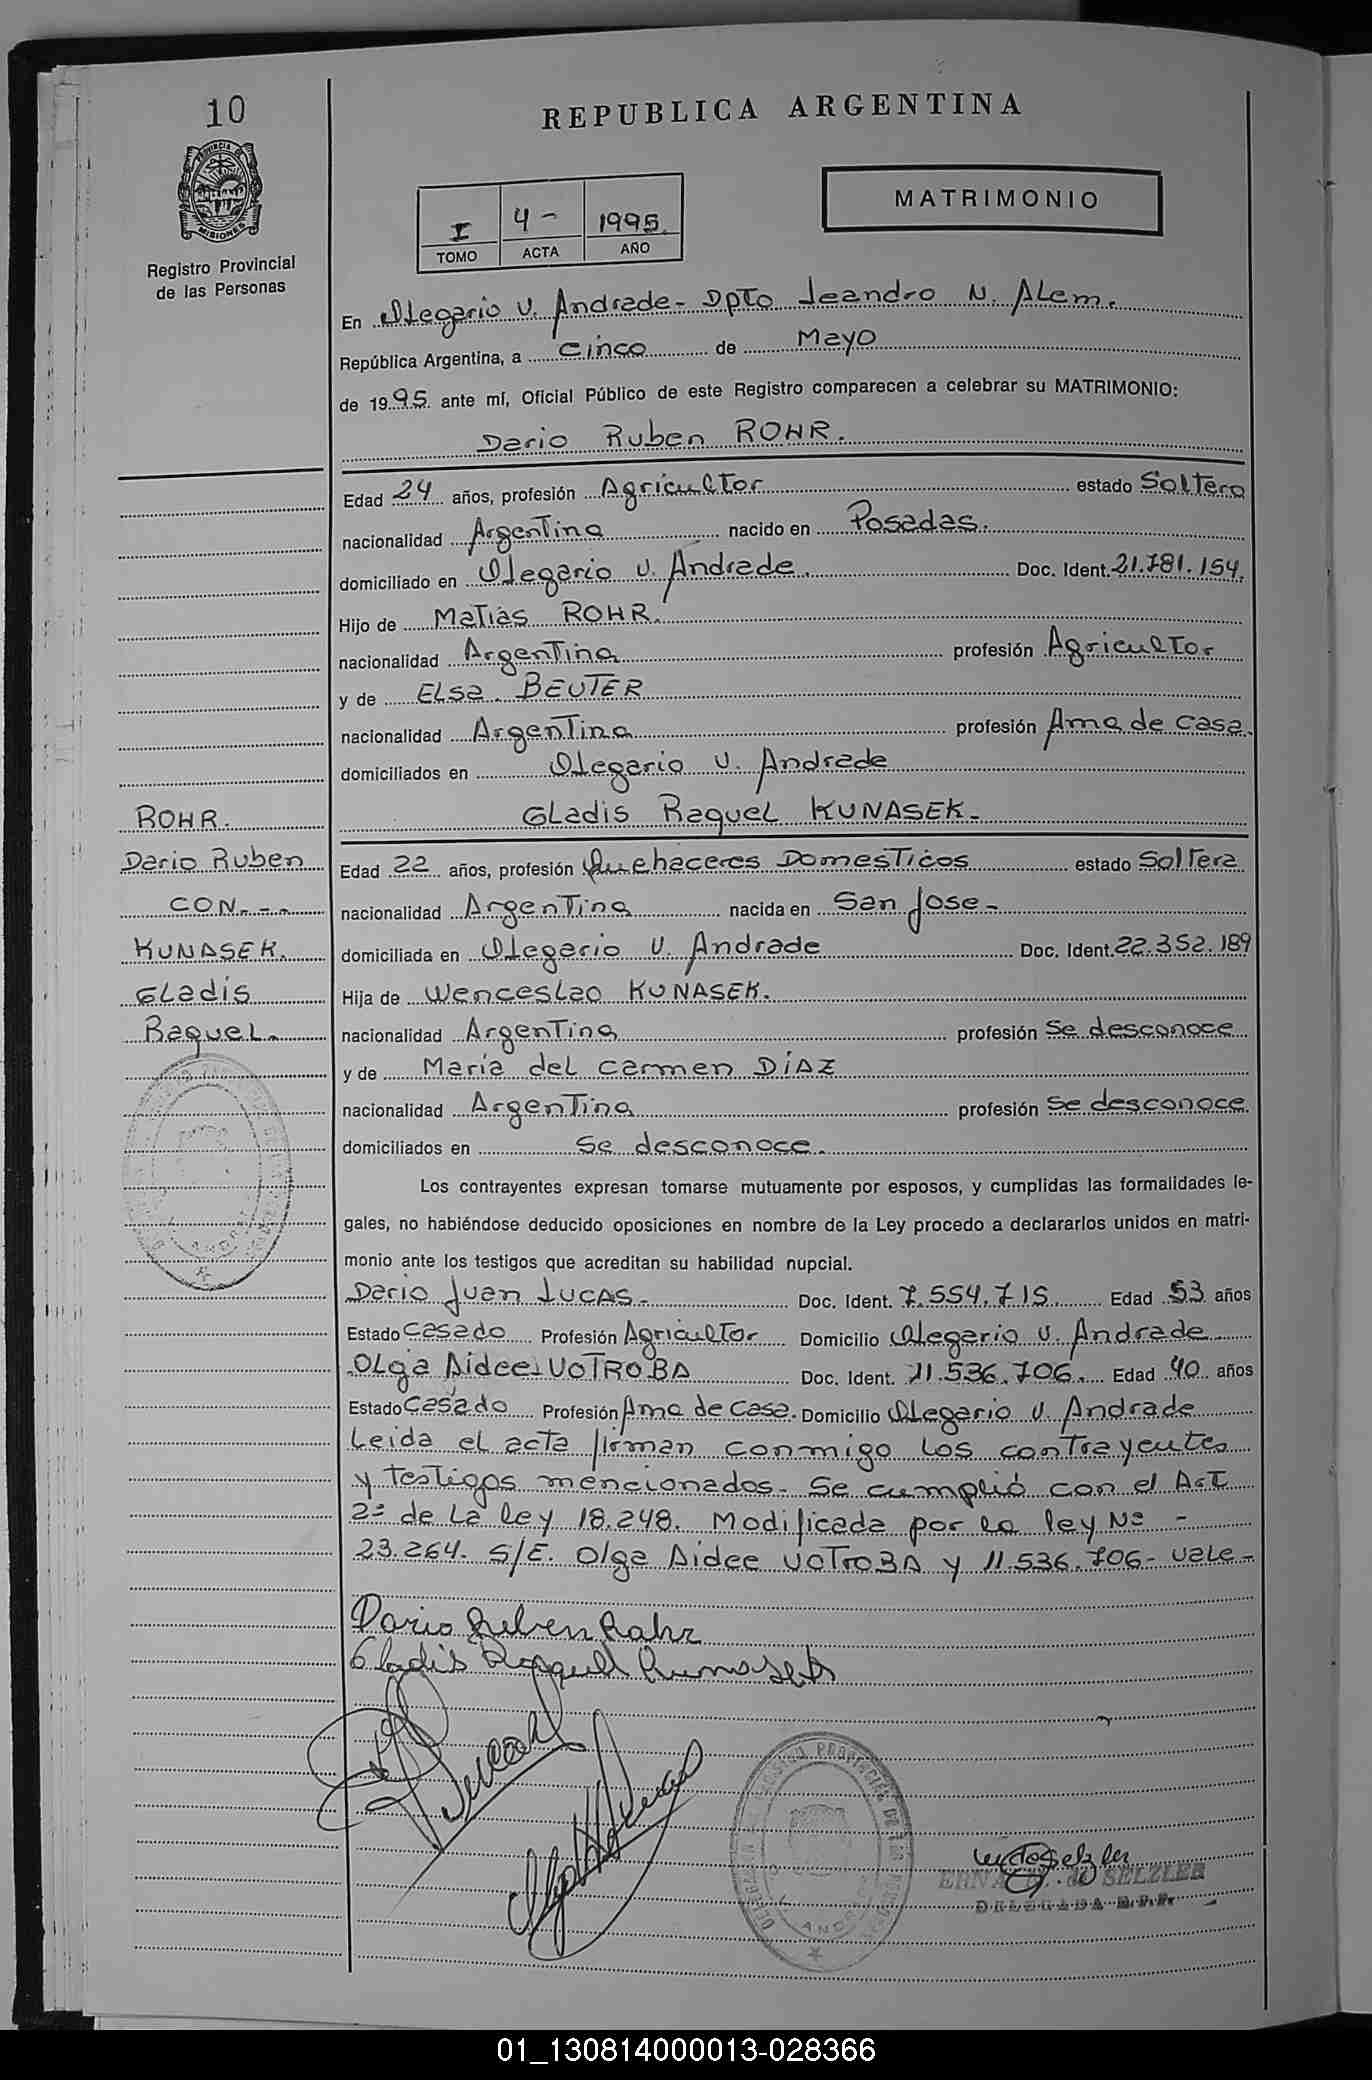 10
REPUBLICA ARGENTINA
PROVINCIA DE
MISIONES
Registro Provincial
de las Personas
I 4- 1995.
TOMO ACTA AÑO
MATRIMONIO
En Olegario V. Andrade- Dpto Leandro N. Alem.
República Argentina, a cinco de Mayo
de 1995. ante mí, Oficial Público de este Registro comparecen a celebrar su MATRIMONIO:
Dario Ruben ROHR.
Edad 24 años, profesión Agricultor estado Soltero
nacionalidad Argentina nacido en Posadas.
domiciliado en Olegario V. Andrade. Doc. Ident. 21.781.154.
Hijo de Matias ROHR.
nacionalidad Argentina profesión Agricultor
y de Elsa. BEUTER
nacionalidad Argentina profesión Ama de casa.
domiciliados en Olegario V. Andrade
Gladis Raquel KUNASEK.
Edad 22 años, profesión Quehaceres Domesticos estado Soltera
nacionalidad Argentina nacida en San Jose-
domiciliada en Olegario V. Andrade Doc. Ident. 22.352.189
Hija de Wenceslao KUNASEK.
nacionalidad Argentina profesión Se desconoce
y de Maria del Carmen DÍAZ
nacionalidad Argentina profesión Se desconoce.
domiciliados en Se desconoce.
ROHR.
Dario Ruben
CON.-.-.
KUNASEK.
Gladis
Raquel.-
Los contrayentes expresan tomarse mutuamente por esposos, y cumplidas las formalidades le-
gales, no habiéndose deducido oposiciones en nombre de la Ley procedo a declararlos unidos en matri-
monio ante los testigos que acreditan su habilidad nupcial.
Dario Juan LUCAS.- Doc. Ident. 7.554.715. Edad 53 años
Estado Casado Profesión Agricultor Domicilio Olegario V. Andrade
Olga Aidee VOTROBA Doc. Ident. 11.536.706. Edad 40 años
Estado Casado Profesión Ama de Casa. Domicilio Olegario V. Andrade
Leida el acta firman conmigo los contrayentes
y testigos mencionados. Se cumplió con el Art
2º de la ley 18.248. Modificada por la ley Nº -
23.264. S/E. Olga Aidee VOTROBA y 11.536.706- Vale-
Dario Ruben Rohr
Gladis Raquel Kunasek
ERNA G. de SELZLER
DELEGADA R.P.P.
01_130814000013-028366